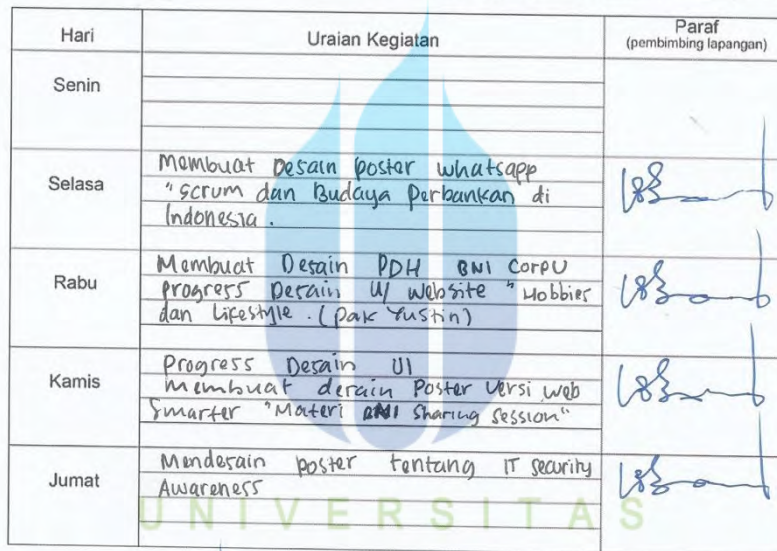 Hari Uraian Kegiatan Paraf
(pembimbing lapangan)
Senin
Selasa
Membuat Desain poster whatsapp
"Scrum dan Budaya Perbankan di
Indonesia.
Rabu
Membuat Desain PDH BNI Corpu
progress Desain UI website "Hobbies
dan Lifestyle. (Pak Yustin)
Kamis
Progress Desain UI
membuat desain Poster versi web
Smarter "Materi BNI sharing session"
Jumat
Mendesain poster tentang IT security
Awareness
UNIVERSITAS